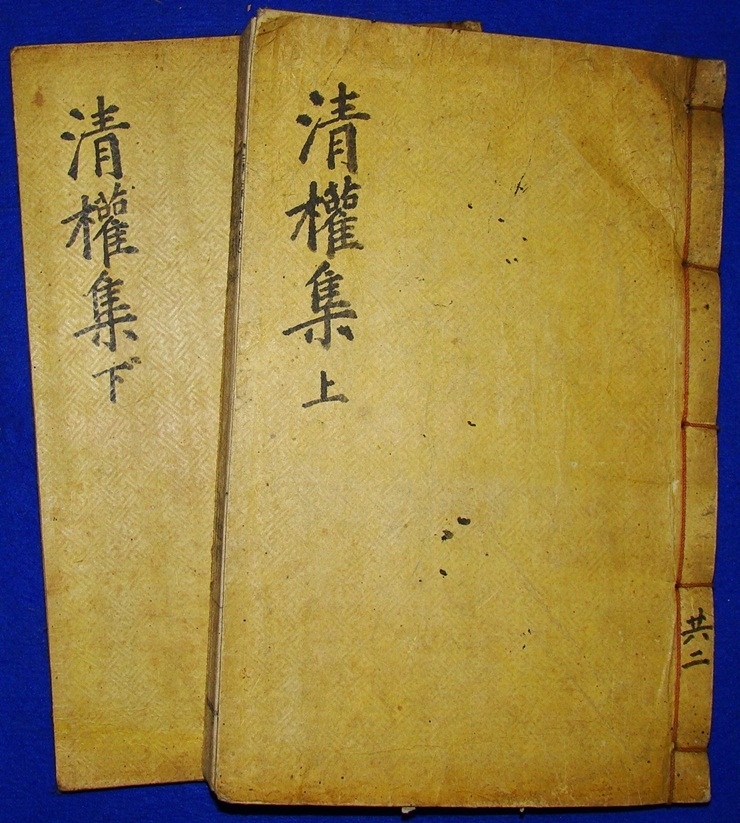 清權集
上
共二
清權集
下